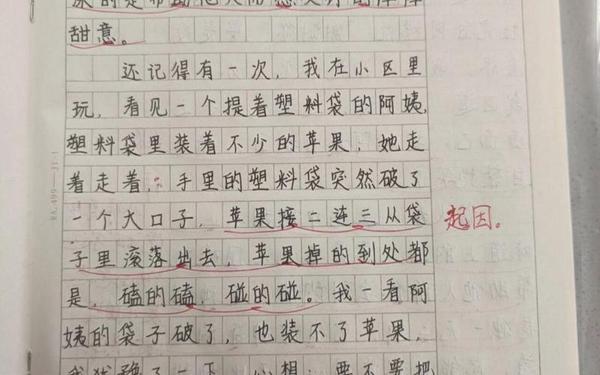 甜意。
还记得有一次，我在小区里
玩，看见一个提着塑料袋的阿姨，
塑料袋里装着不少的苹果，她走
着走着，手里的塑料袋突然破了
一个大口子，苹果接二连三从袋
子里滚落出去，苹果掉的到处都
是，磕的磕，碰的碰。我一看阿
姨的袋子破了，也装不了苹果，
我犹豫了一下，心想：要不要把
起因。